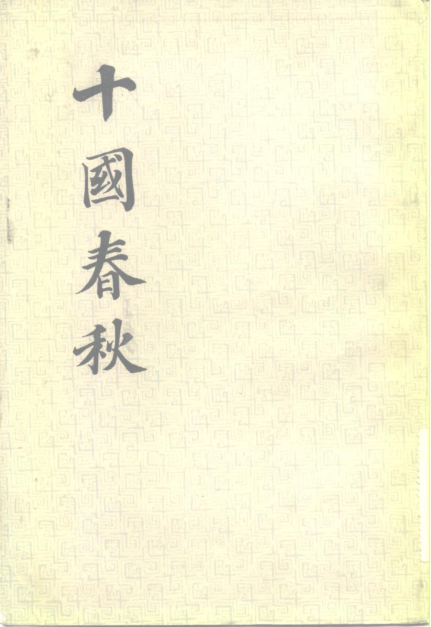 十國春秋